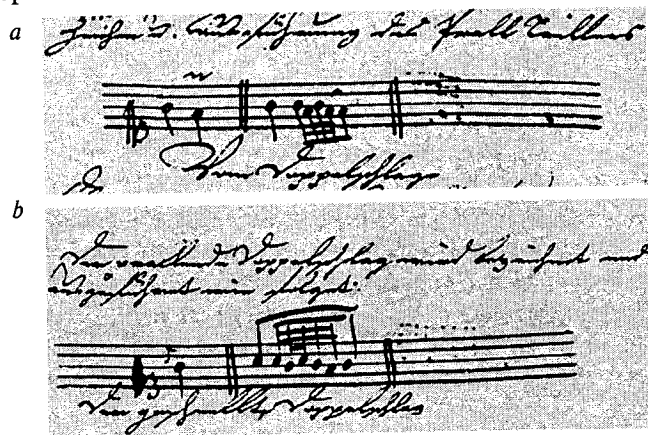 a
Zeichen u. Ausführung des Prall Trillers
Vom Doppelschlage
b
Der prallende Doppelschlag wird bezeichnet und
ausgeführet wie folget:
Der geschnellte Doppelschlag